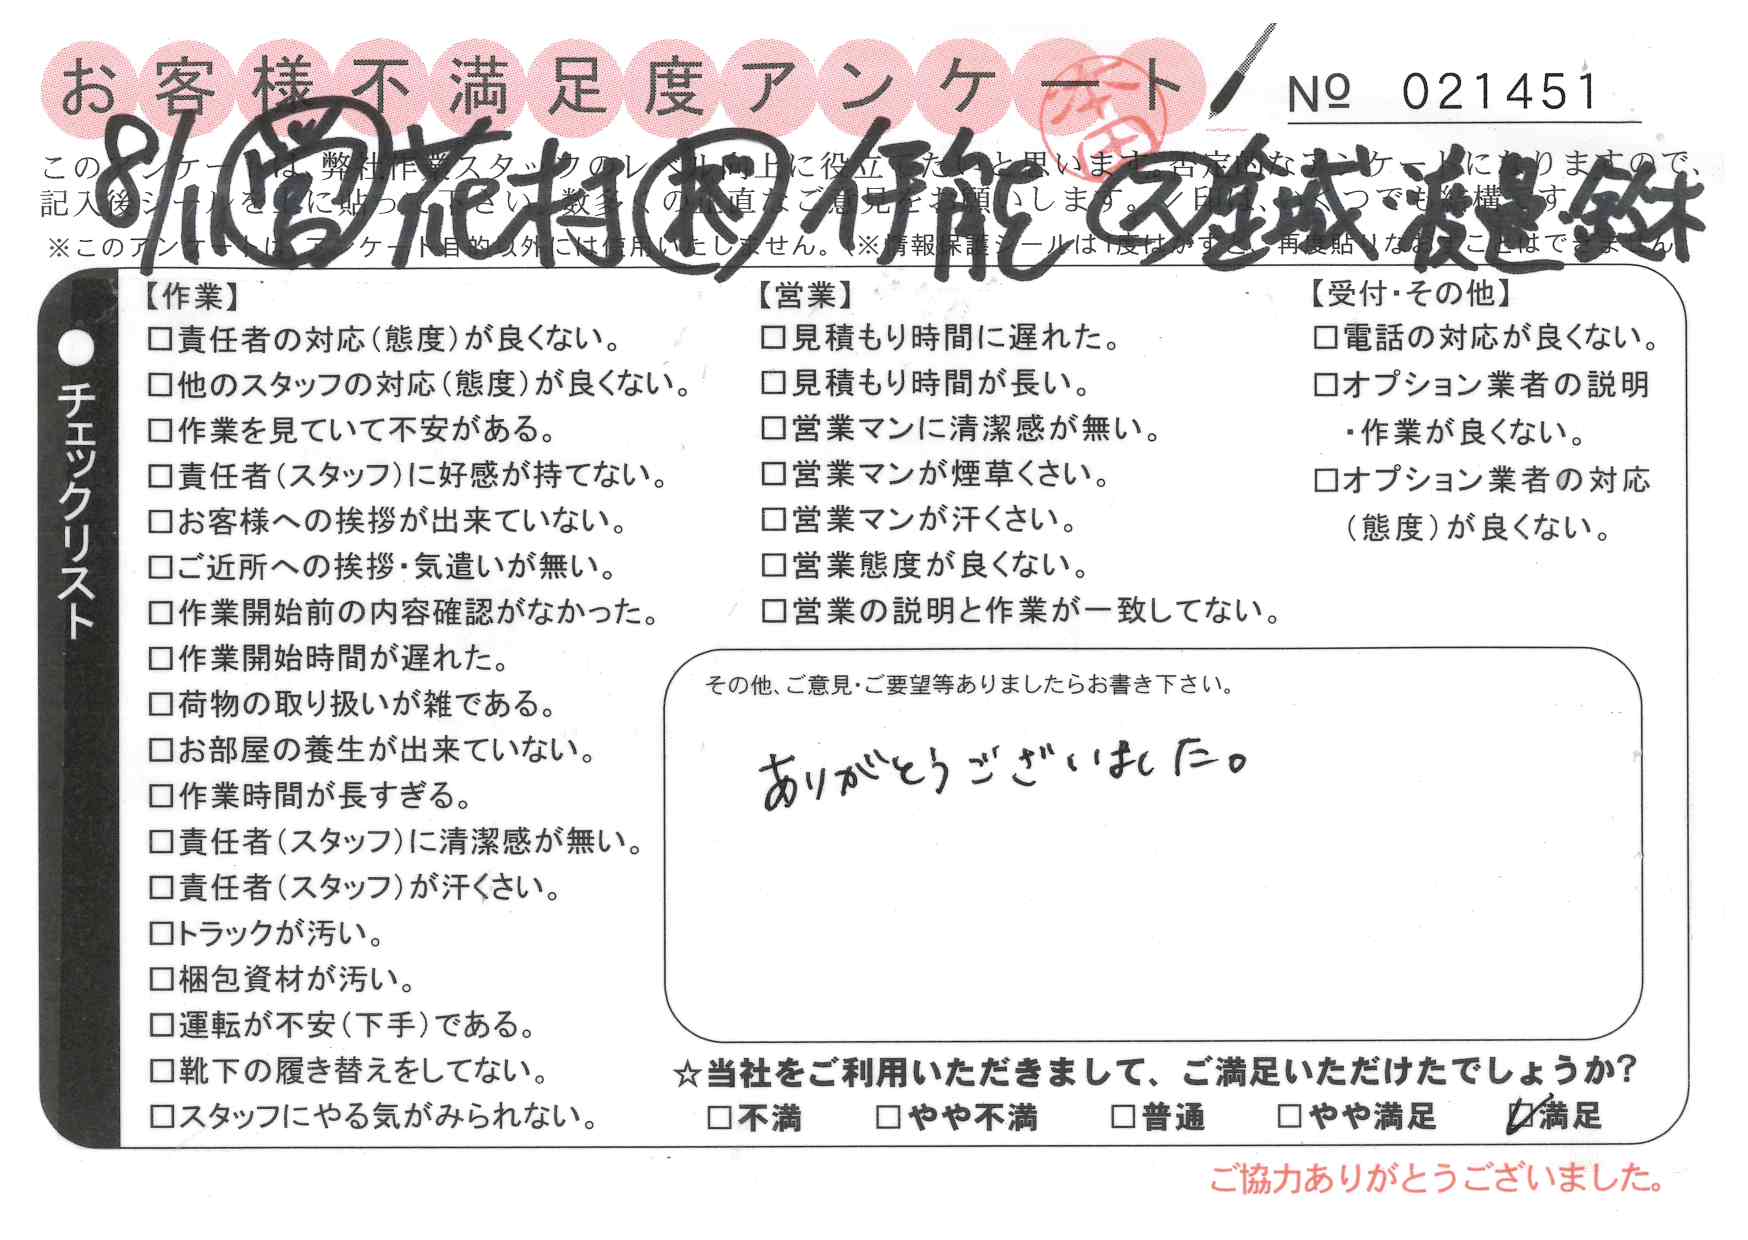 お客様不満足度アンケート
№ 021451
本田
8/1 営 花村 木 伊能 ス 金城 渡邉 鈴木
このアンケートは、弊社作業スタッフのレベル向上に役立てたいと思います。否定的なアンケートになりますので、
記入後シールを上に貼って下さい。数多くの正直なご意見をお願いします。✓印は、いくつでも結構です。
※このアンケートは、アンケート目的以外には使用いたしません。(※情報保護シールは1度はがすと、再度貼りなおすことはできません。
●チェックリスト
【作業】
□責任者の対応(態度)が良くない。
□他のスタッフの対応(態度)が良くない。
□作業を見ていて不安がある。
□責任者(スタッフ)に好感が持てない。
□お客様への挨拶が出来ていない。
□ご近所への挨拶・気遣いが無い。
□作業開始前の内容確認がなかった。
□作業開始時間が遅れた。
□荷物の取り扱いが雑である。
□お部屋の養生が出来ていない。
□作業時間が長すぎる。
□責任者(スタッフ)に清潔感が無い。
□責任者(スタッフ)が汗くさい。
□トラックが汚い。
□梱包資材が汚い。
□運転が不安(下手)である。
□靴下の履き替えをしてない。
□スタッフにやる気がみられない。
【営業】
□見積もり時間に遅れた。
□見積もり時間が長い。
□営業マンに清潔感が無い。
□営業マンが煙草くさい。
□営業マンが汗くさい。
□営業態度が良くない。
□営業の説明と作業が一致してない。
【受付・その他】
□電話の対応が良くない。
□オプション業者の説明
・作業が良くない。
□オプション業者の対応
(態度)が良くない。
その他、ご意見・ご要望等ありましたらお書き下さい。
ありがとうございました。
☆当社をご利用いただきまして、ご満足いただけたでしょうか?
□不満 □やや不満 □普通 □やや満足 ☑満足
ご協力ありがとうございました。